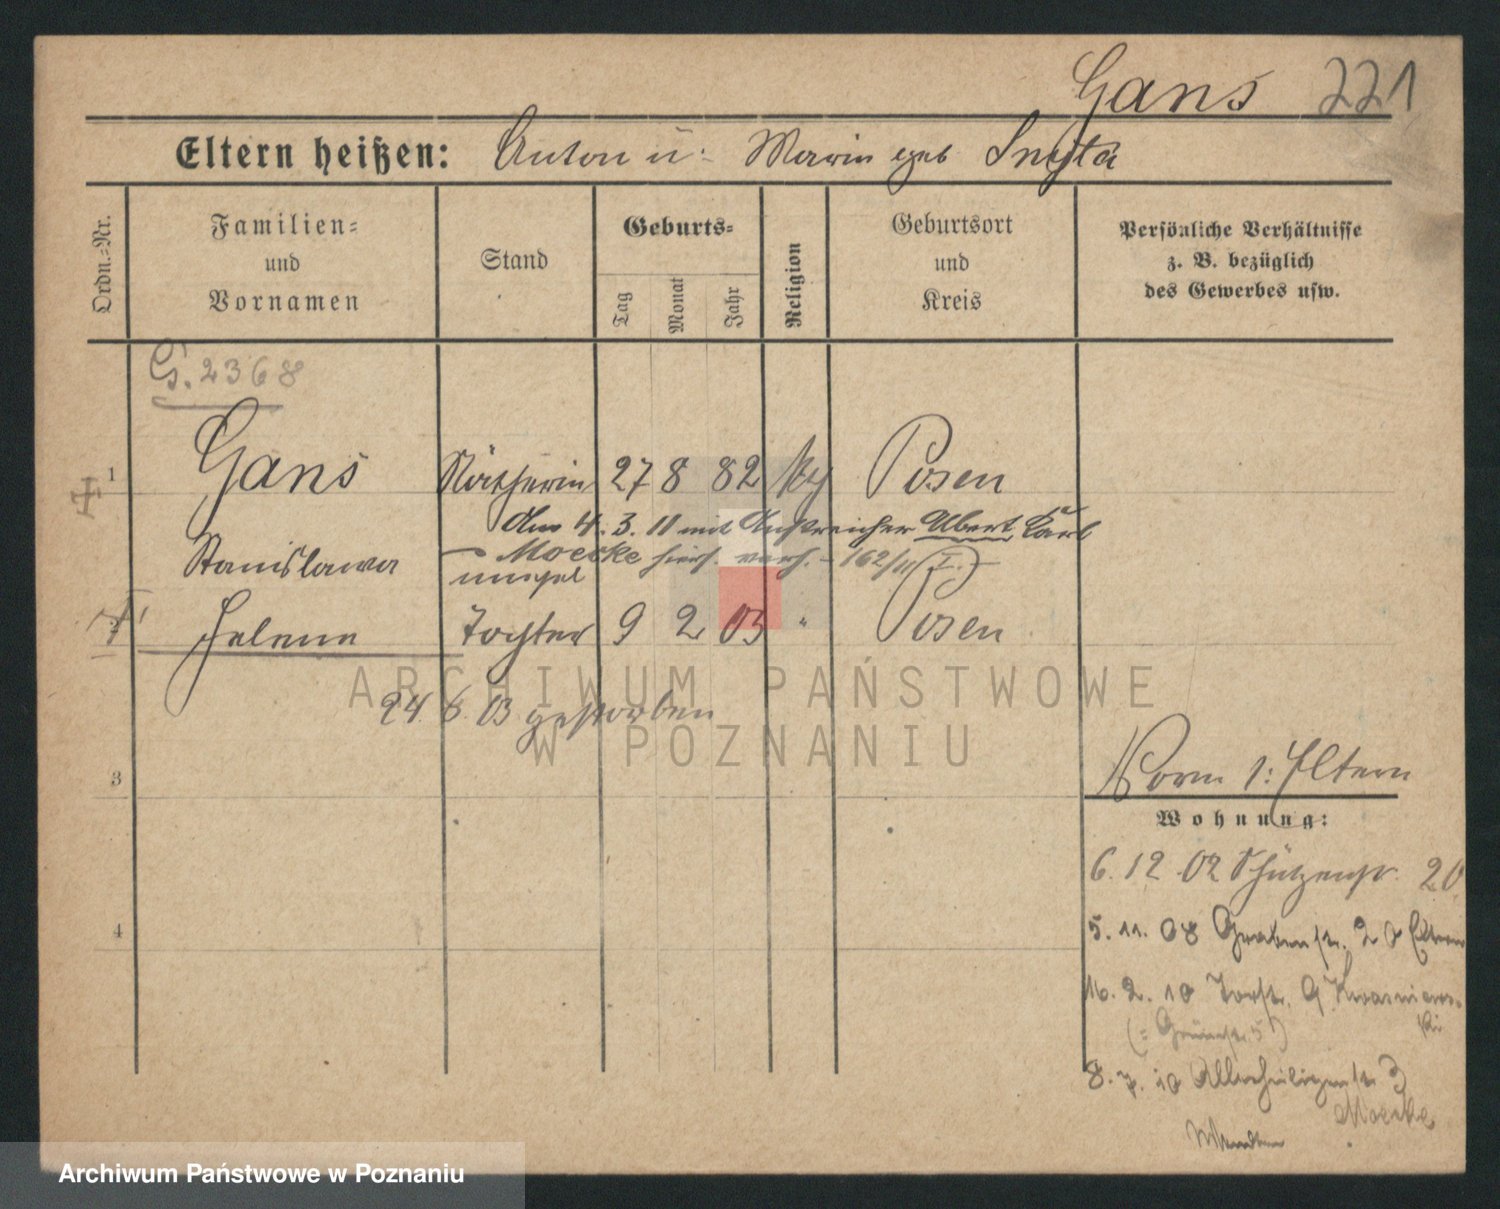 Gans 221
Eltern heißen: Anton u: Maria geb
Ordn.-Nr.
Familien-
und
Vornamen
Stand
Geburts-
Tag
Monat
Jahr
Religion
Geburtsort
und
Kreis
Persönliche Verhältnisse
z. B. bezüglich
des Gewerbes usw.
G. 2368
1 Gans Nätherin 27 8 82 Posen
Am 4. 3. 11 mit Anstreicher Albert Karl
Stanislawa Moecke hies. verh. - 162/11
unehel
Helene Tochter 9 2 03 " Posen
24. 6. 03 gestorben
ARCHIWUM PAŃSTWOWE
W POZNANIU
3
Vorm 1: Eltern
Wohnung:
6. 12 02 Schützenstr. 20
4
5. 11. 08 Grabenstr. 20 Eltern
16. 2. 10 Torstr. 9
8. 7. 10 Allerheiligenstr 3
Moecke
Wenden
Archiwum Państwowe w Poznaniu